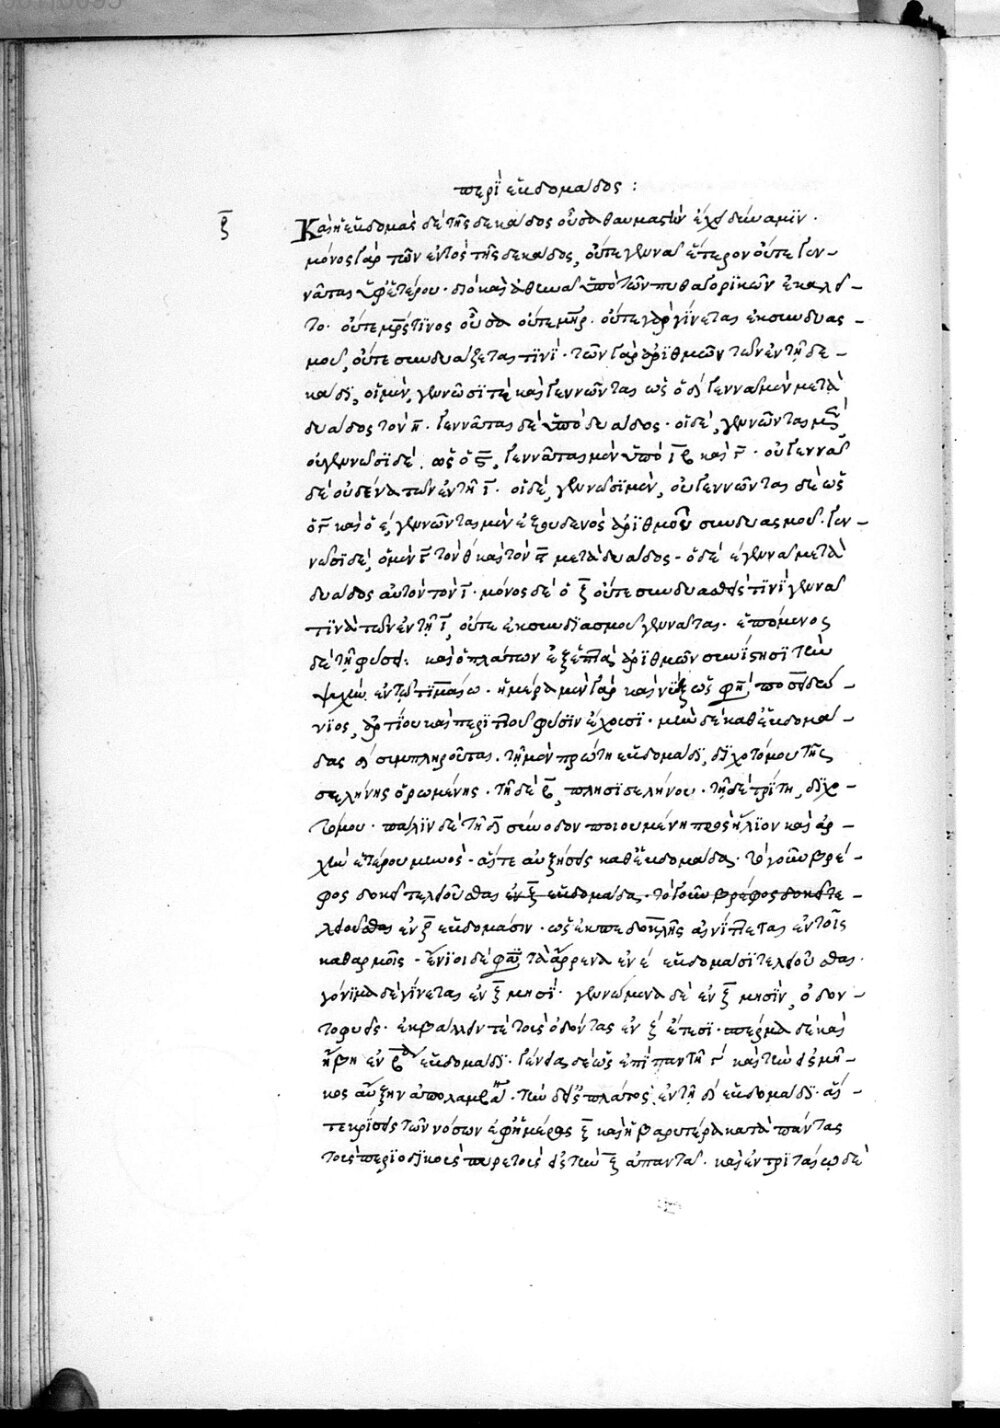 περὶ ἑβδομάδος :
ζ̄
Καὶ ἡ ἑβδομὰς δὲ τῆς δεκάδος οὖσα θαυμαστὴν ἔχει δύναμιν ·
μόνος γὰρ τῶν ἐντὸς τῆς δεκάδος, οὔτε γεννᾶ ἕτερον οὔτε γεν–
νᾶται ὑφ' ἑτέρου · διὸ καὶ ἀθηνᾶ ὑπὸ τῶν πυθαγορικῶν ἐκαλεῖ–
το · οὔτε μρ̄ς τινος οὖσα οὔτε μηρ̄ · οὔτε γὰρ γίνεται ἐκ συνδυασ–
μοῦ, οὔτε συνδυάζεται τινί · τῶν γὰρ ἀριθμῶν τῶν ἐν τῇ δε–
κάδι, οἱ μὲν, γεννῶσί τε καὶ γεννῶνται ὡς ὁ δ̄ γεννᾶ μὲν μετὰ
δυάδος τὸν η̄ · γεννᾶται δὲ ὑπὸ δυάδος · οἱ δὲ, γεννῶνται μὲν
οὐ γεννῶσι δέ · ὡς ὁ ς̄, γεννᾶται μὲν ὑπὸ β̄ καὶ γ̄ · οὐ γεννᾶ
δὲ οὐδένα τῶν ἐν τῇ ῑ · οἱ δὲ, γεννῶσι μὲν, οὐ γεννῶνται δὲ ὡς
ὁ γ̄ καὶ ὁ ε̄, γεννῶνται μὲν ἐξ οὐδενὸς ἀριθμοῦ συνδυασμοῦ · γεν–
νῶσι δὲ, ὁ μὲν γ̄ τὸν θ̄ καὶ τὸν ς̄ μετὰ δυάδος – ὁ δὲ ε̄ γεννᾶ μετὰ
δυάδος αὐτὸν τὸν ῑ · μόνος δὲ ὁ ζ̄ οὔτε συνδυασθεὶς τινὶ γεννᾶ
τινὰ τῶν ἐν τῇ ῑ, οὔτε ἐκ συνδιασμοῦ γεννᾶται · ἑπόμενος
δὲ τῇ φύσει · καὶ ὁ πλάτων ἐξ ἑπτὰ ἀριθμῶν συνίστησι τὴν
ψυχὴν ἐν τῷ τιμαίῳ · ἡμέρα μὲν γὰρ καὶ νὺξ ὥς φη̄, ποσειδώ–
νιος, ἀρτίου καὶ περιττοῦ φύσιν ἔχουσι · μὴν δὲ καθ' ἑβδομά–
δας δ̄ συμπληροῦται · τῇ μὲν πρώτῃ ἑβδομάδι, διχοτόμου τῆς
σελήνης ὁρωμένης · τῇ δὲ β̄, πλησισελήνου · τῇ δὲ τρίτῃ, διχο–
τόμου · πάλιν δὲ τῇ δ̄ σύνοδον ποιουμένη πρὸς ἥλιον καὶ ἀρ–
χὴν ἑτέρου μηνός · αἵ τε αὐξήσεις καθ' ἑβδομάδα · τὸ γοῦν βρέ–
φος δοκεῖ τελειοῦσθαι ἐν ζ̄ ἑβδομάδα · τὸ γοῦν βρέφος δοκεῖ τε–
λειοῦσθαι ἐν ζ̄ ἑβδομάσιν · ὡς ἐμπεδοκλῆς αἰνίττεται ἐν τοῖς
καθαρμοῖς – ἔνιοι δὲ φασὶ τὰ ἄρρενα ἐν ε̄ ἑβδομάσι τελειοῦσθαι ·
γόνιμα δὲ γίνεται ἐν ζ̄ μησί · γενώμενα δὲ ἐν ζ̄ μησὶν, ὀδον–
τοφυεῖ · ἐκβάλλειν τε τοὺς ὀδόντας ἐν ζ̄ ἔτεσι · σπέρμα δὲ καὶ
ἥβη ἐν β̄ ἑβδομάδι · γένεια δὲ ὡς ἐπίπαν τῇ γ̄ καὶ τὴν εἰς μῆ–
κος αὔξην ἀπολαμβάνει · τὴν δ' εἰς πλάτος ἐν τῇ δ̄ ἑβδομάδι · αἵ–
τε κρίσεις τῶν νόσων ἐφ' ἡμέρας ζ̄ καὶ ἡ βαρυτέρα κατὰ πάντας
τοὺς περιοδικοὺς πυρετοὺς εἰς τὴν ζ̄ ἀπαντᾶ · καὶ ἐν τριταίῳ δὲ